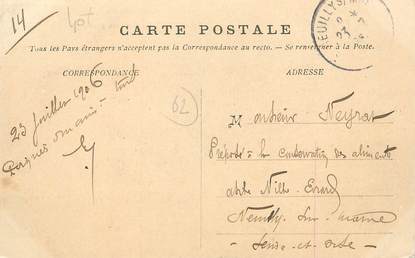 14
Lot
CARTE POSTALE
Tous les Pays étrangers n'acceptent pas la Correspondance au recto. — Se renseigner à la Poste.
CORRESPONDANCE
ADRESSE
NEUILLY S
23 Juillet 1906
62
Monsieur Neyrat
Préposé à la conservation des aliments
Ville-Evrard
Neuilly sur Marne
Seine-et-Oise